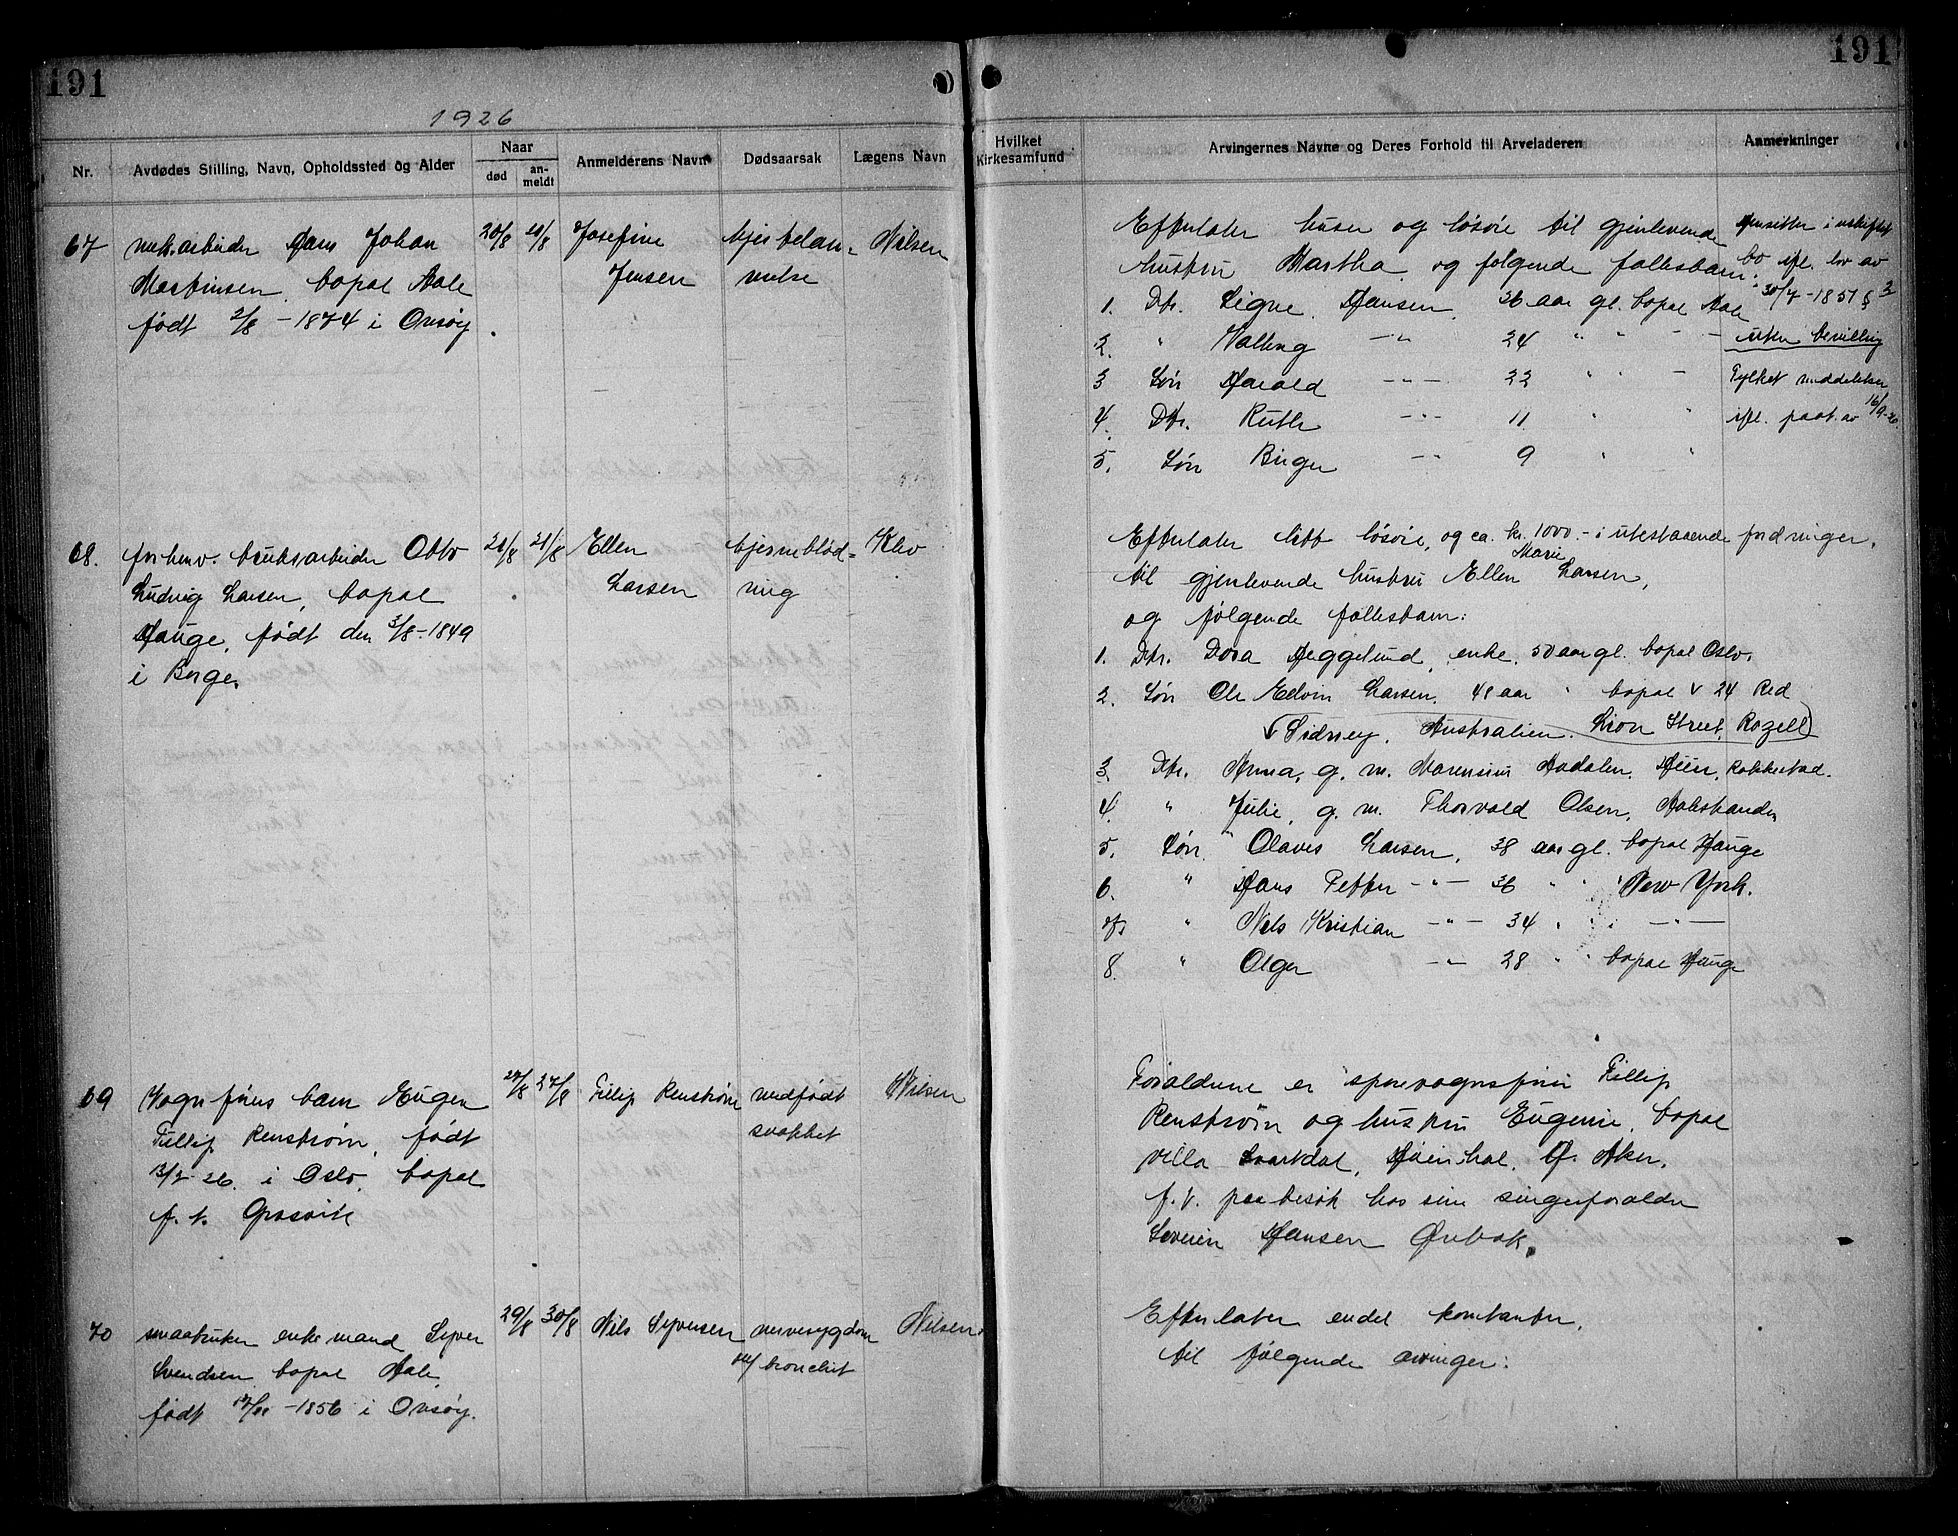 191
191
1926
Nr.
Avdødes Stilling, Navn, Opholdssted og Alder
Naar
død
an-
meldt
Anmelderens Navn
Dødsaarsak
Lægens Navn
Hvilket
Kirkesamfund
Arvingernes Navne og Deres Forhold til Arveladeren
Anmerkninger
67
mek. arbeider Hans Johan
Martinsen, bopæl Aale
født 2/8 -1874 i Onsøy.
20/8
Josefine
Jensen
hjertelam-
melse
Nilsen
Efterlater huser og løsøre til gjenlevende
hustru Martha og følgende fællesbarn:
1. Dtr. Signe Hansen, 26 aar gl. bopæl Aale
2. " Valborg -"- 24 " " -
3 Søn Harald -"- 22 " -
4. Dtr. Ruth -"- 11 " "
5. Søn Birger -"- 9 " "
Hensitter i uskiftet
bo ifl. lov av
30/7-1851 §
uten bevilling
Fylket meddelelse
ifl. paat. av 16/9-26.
68.
forhenv. bruksarbeider Otto
Ludvig Larsen, bopæl
Hauge, født den 3/8-1849
i Borge.
21/8
21/8
Ellen
Larsen
hjerneblød-
ning
Klev
Efterlater litt løsøre, og ca. kr. 1000.- i utestaaende fordringer,
til gjenlevende hustru Ellen Marie Larsen,
og følgende fællesbarn:
1. Dtr. Dora Heggelund, enke, 50 aar gl. bopæl Oslo.
2. Søn Ole Edvin Larsen, 48 aar " bopæl 24 Red
Sidney, Australien. Lion Street, Rozell
3. Dtr. Anna, g. m. Marensius Aadalen, Heier, Rakkestad.
4. " Julie, g. m. Thorvald Olsen, Aalestranden
5. Søn " Olaves Larsen, 38 aar gl. bopæl Hauge
6. " Hans Petter -"- 36 " " New York.
7 " Nils Kristian -"- 34 " " -"-
8. " Olger -"- 28 " " bopæl Hauge
69
Vognførers barn Eugen
Fillip Renstrøm, født
3/2-26. i Oslo, bopæl
f. t. Græsvik
27/8
27/8
Fillip Renstrøm
medfødt
svakhet
Nilsen
Forældrene er sporvognsfører Fillip
Renstrøm og hustru Eugenie, bopæl
villa Svartdal, Høienhal. Ø. Aker.
f. t. paa besøk hos sine svigerforældre
Severin Hansen Ørebæk.
70
smaabruker enkemand Syver
Svendsen bopæl Aale,
født -1856 i Onsøy.
29/8
30/8
Nils Syversen
nervesygdom
m/ bronchit
Nilsen
Efterlater endel kontanter,
til følgende arvinger: